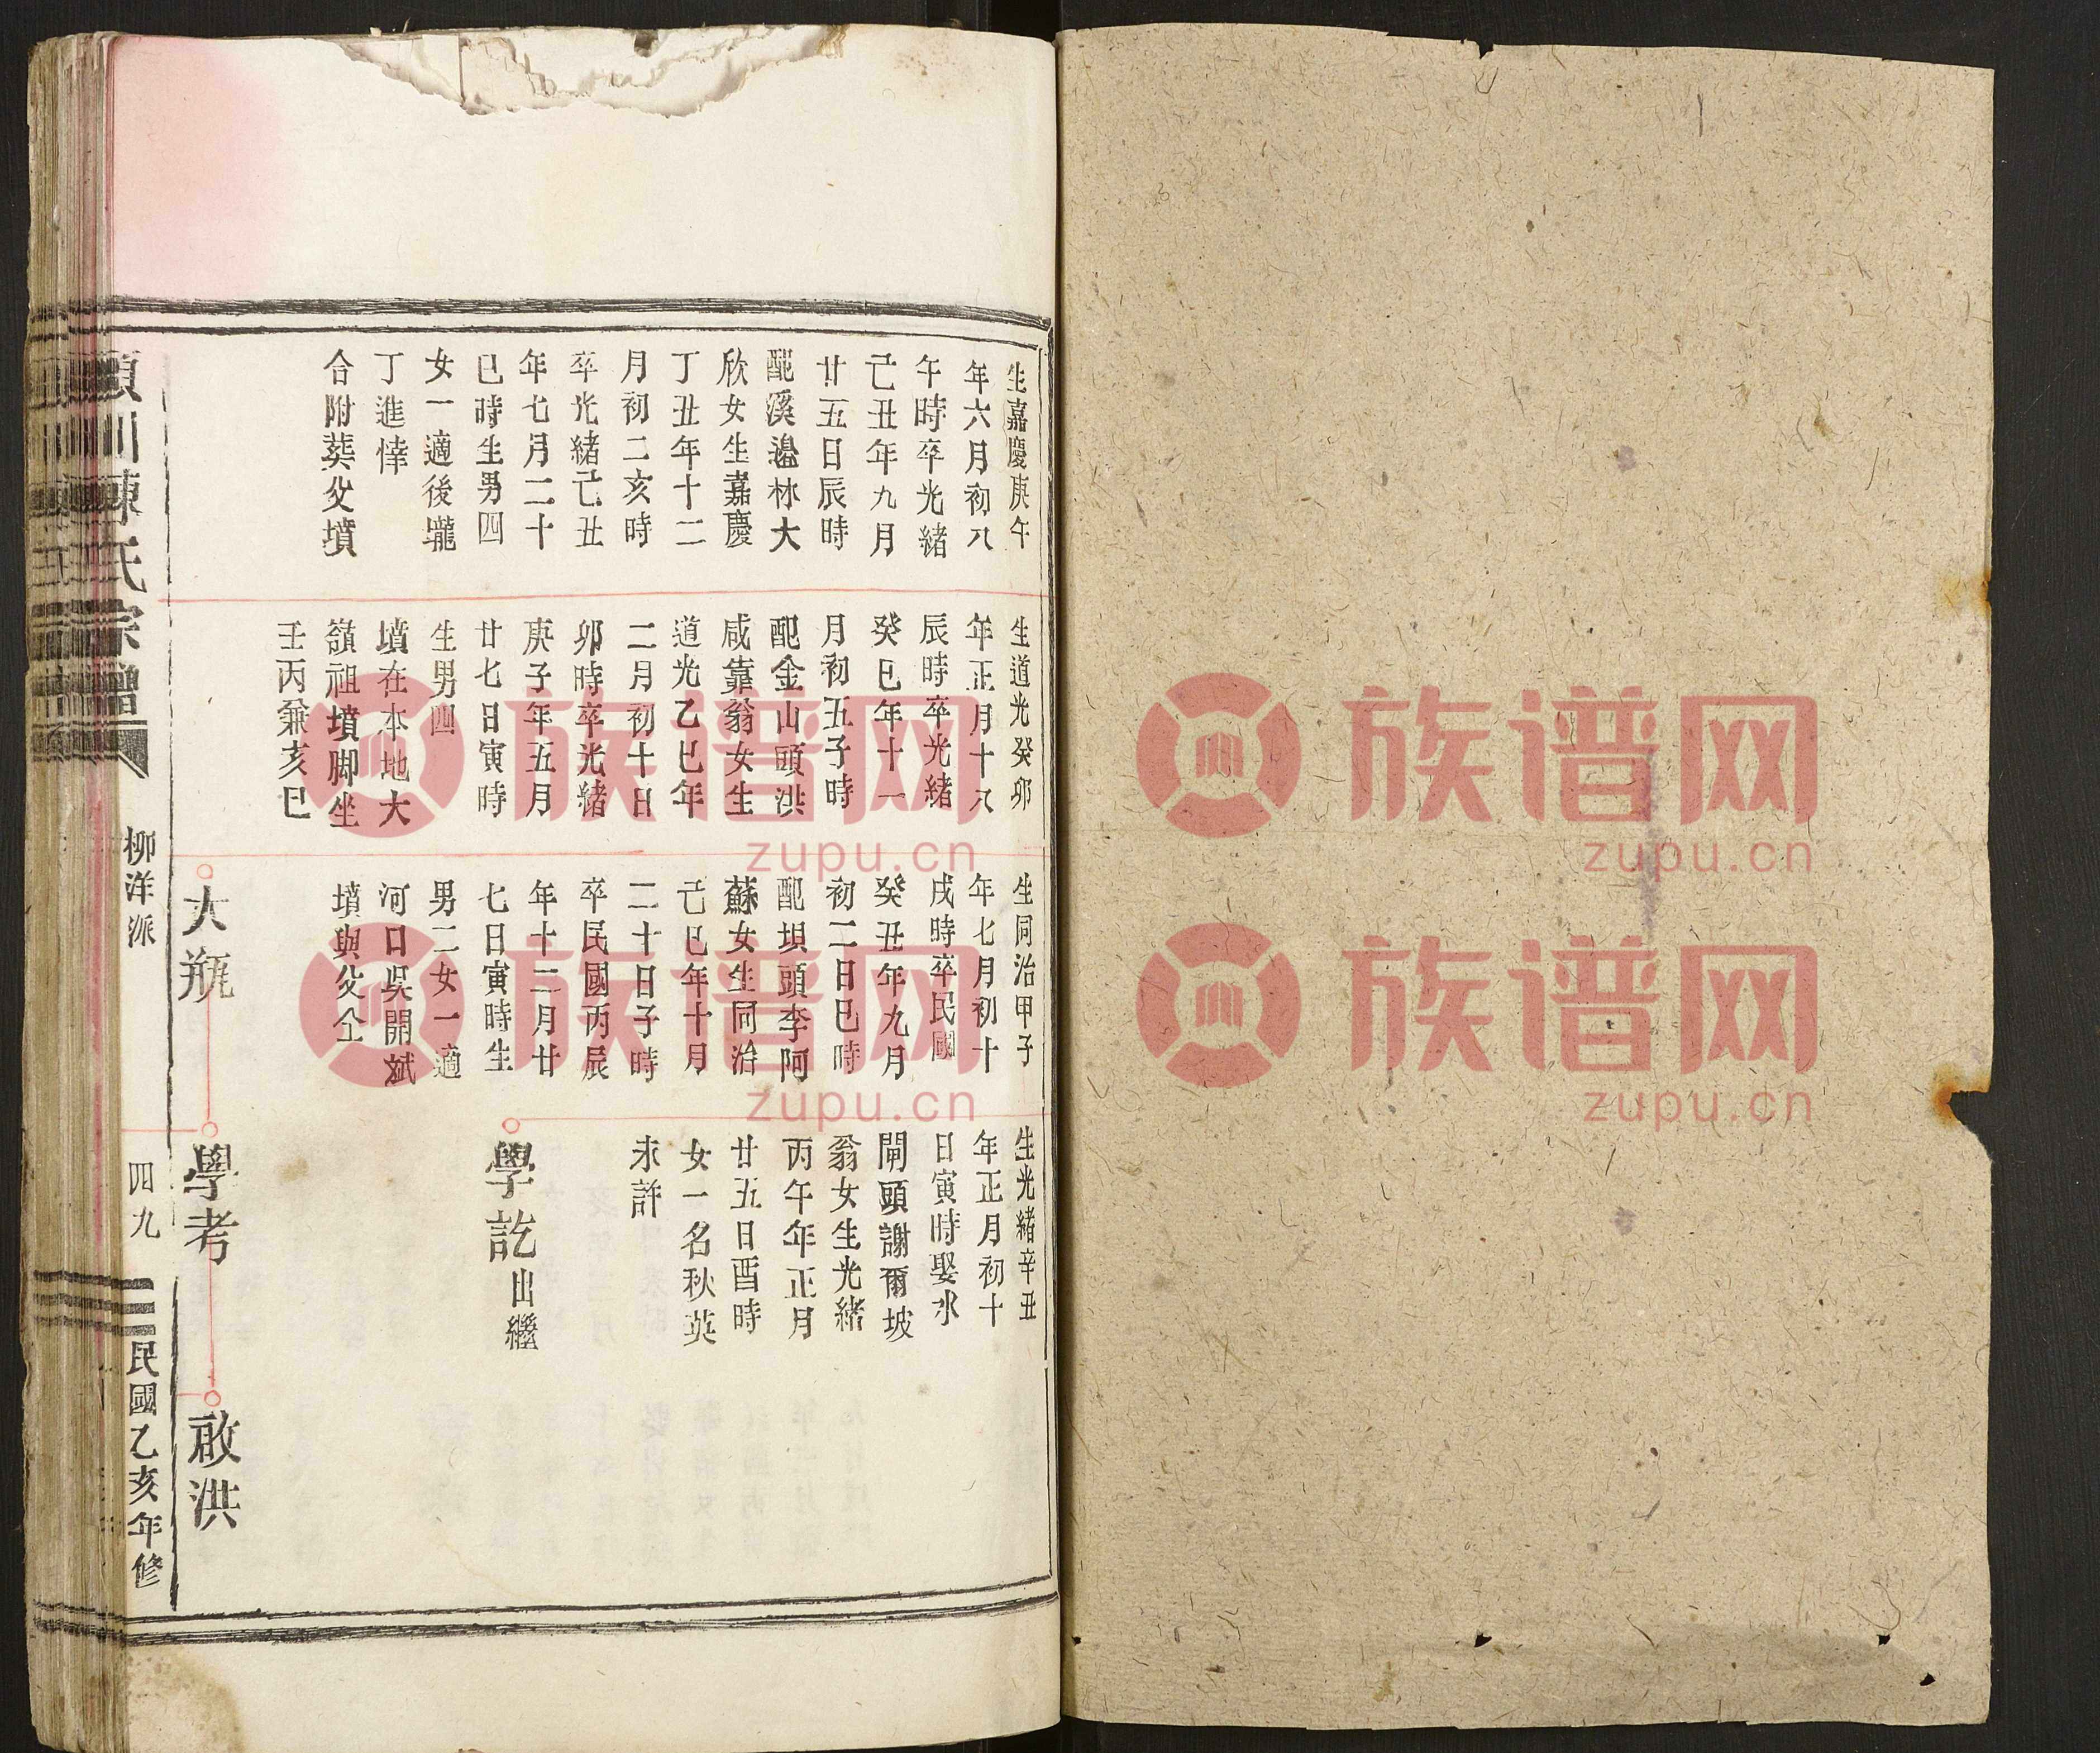 生嘉慶庚午
年六月初八
午時卒光緒
己丑年九月
廿五日辰時
配溪邊林大
欣女生嘉慶
丁丑年十二
月初二亥時
卒光緒己丑
年七月二十
巳時生男四
女一適後壠
丁進悻
合附葬父墳
生道光癸卯
年正月十八
辰時卒光緒
癸巳年十一
月初五子時
配金山頭洪
咸靠翁女生
道光乙巳年
二月初十日
卯時卒光緒
庚子年五月
廿七日寅時
生男四
墳在本地大
嶺祖墳脚坐
壬丙兼亥巳
生同治甲子
年七月初十
戌時卒民國
癸丑年九月
初二日巳時
配垻頭李阿
蘇女生同治
己巳年十月
二十日子時
卒民國丙辰
年十二月廿
七日寅時生
男二女一適
河口吳開斌
墳與父仝
大瓶
生光緒辛丑
年正月初十
日寅時娶水
閘頭謝爾坡
翁女生光緒
丙午年正月
廿五日酉時
女一名秋英
未許
學訖出繼
學考
啟洪
潁川陳氏宗譜
柳洋派
四九
民國乙亥年修
族谱网
zupu.cn
族谱网
zupu.cn
族谱网
zupu.cn
族谱网
zupu.cn